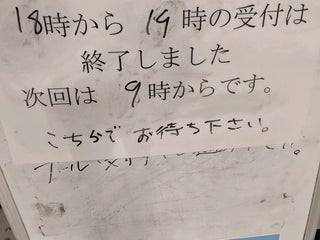 18時から 19時の受付は
終了しました
次回は 9時からです。
こちらで お待ち下さい。